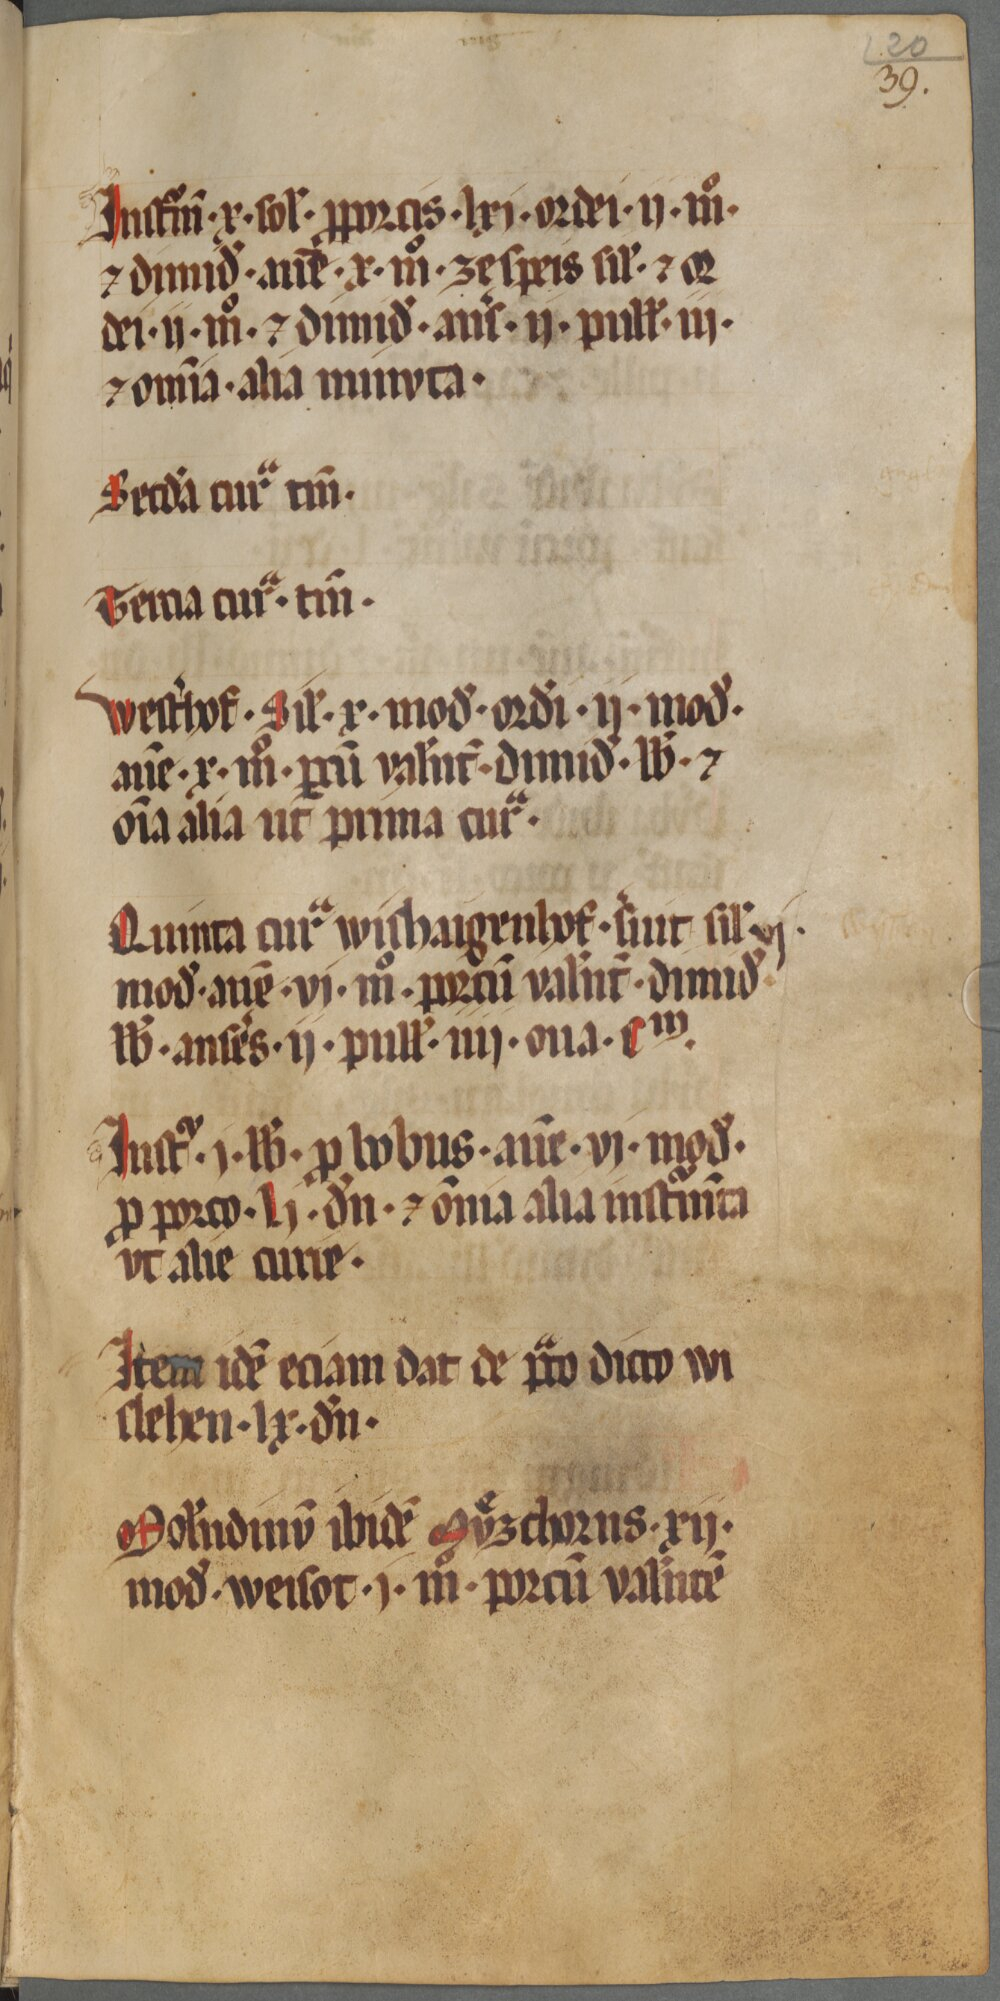 20
39.
Instͣm̄ · x · sol̕ · ꝓporcis · lxj · ordei · ij · m̊ ·
⁊ dimid̕ · aūe · x · m̊ · zespeis sil̕ · ⁊ or
dei · ij · m̊ · ⁊ dimid̕ · aūs̕ · ij · pull̕ · iij ·
⁊ om̄ia · alia minvta ·
Secd̕a curͣ tm̄ ·
Tercia curͣ · tm̄ ·
West̕hof · Sil̕ · x · mod̕ · ord̕i · ij · mod̕ ·
aūe · x · m̊ · ꝑcū val̕nt̄ · dimid̕ · lb̄ · ⁊
ōia alia ut prima curͣ ·
Quinta curͣ wishaigenhof · s̕uit sil̕ · vj ·
mod̕ · aūe · vj · m̊ · porcū val̕nt̄ · dimid̕
lb̄ · anse̕s · ij · pull̕ · iiij · oua · C ·
Instͣ · j · lb̄ · ꝓ bobus · aūe · vj · mod̕ ·
ꝓ porco · lj · d̕n · ⁊ ōmia alia instͣm̄ta
vt alie curie ·
Item idē eciam dat de pͣto dicto wi
slehen · lx · d̕n ·
Mol̕ndinū ibidē Mͤvzchorns · xij ·
mod̕ · weisot · j · m̊ · porcū val̕ntē